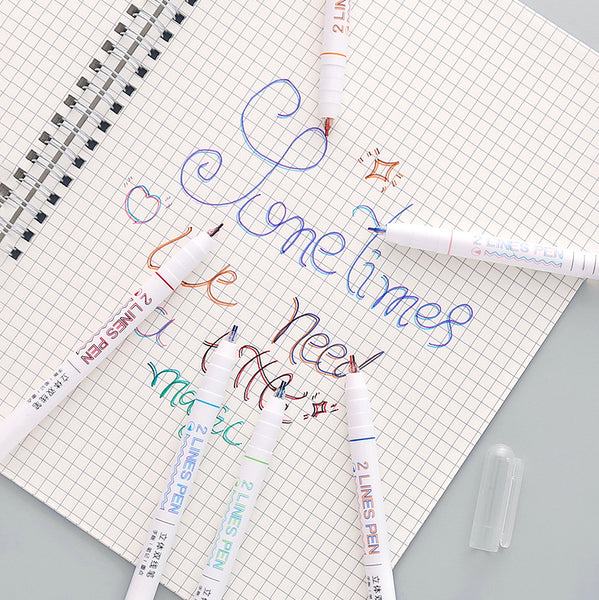 2 LINES
Sometimes
2 LINES PEN
we need
a
magic
2 LINES PEN
立体双线笔
2 LINES PEN
立体双线笔
2 LINES PEN
立体双线笔
2 LINES PEN
立体双